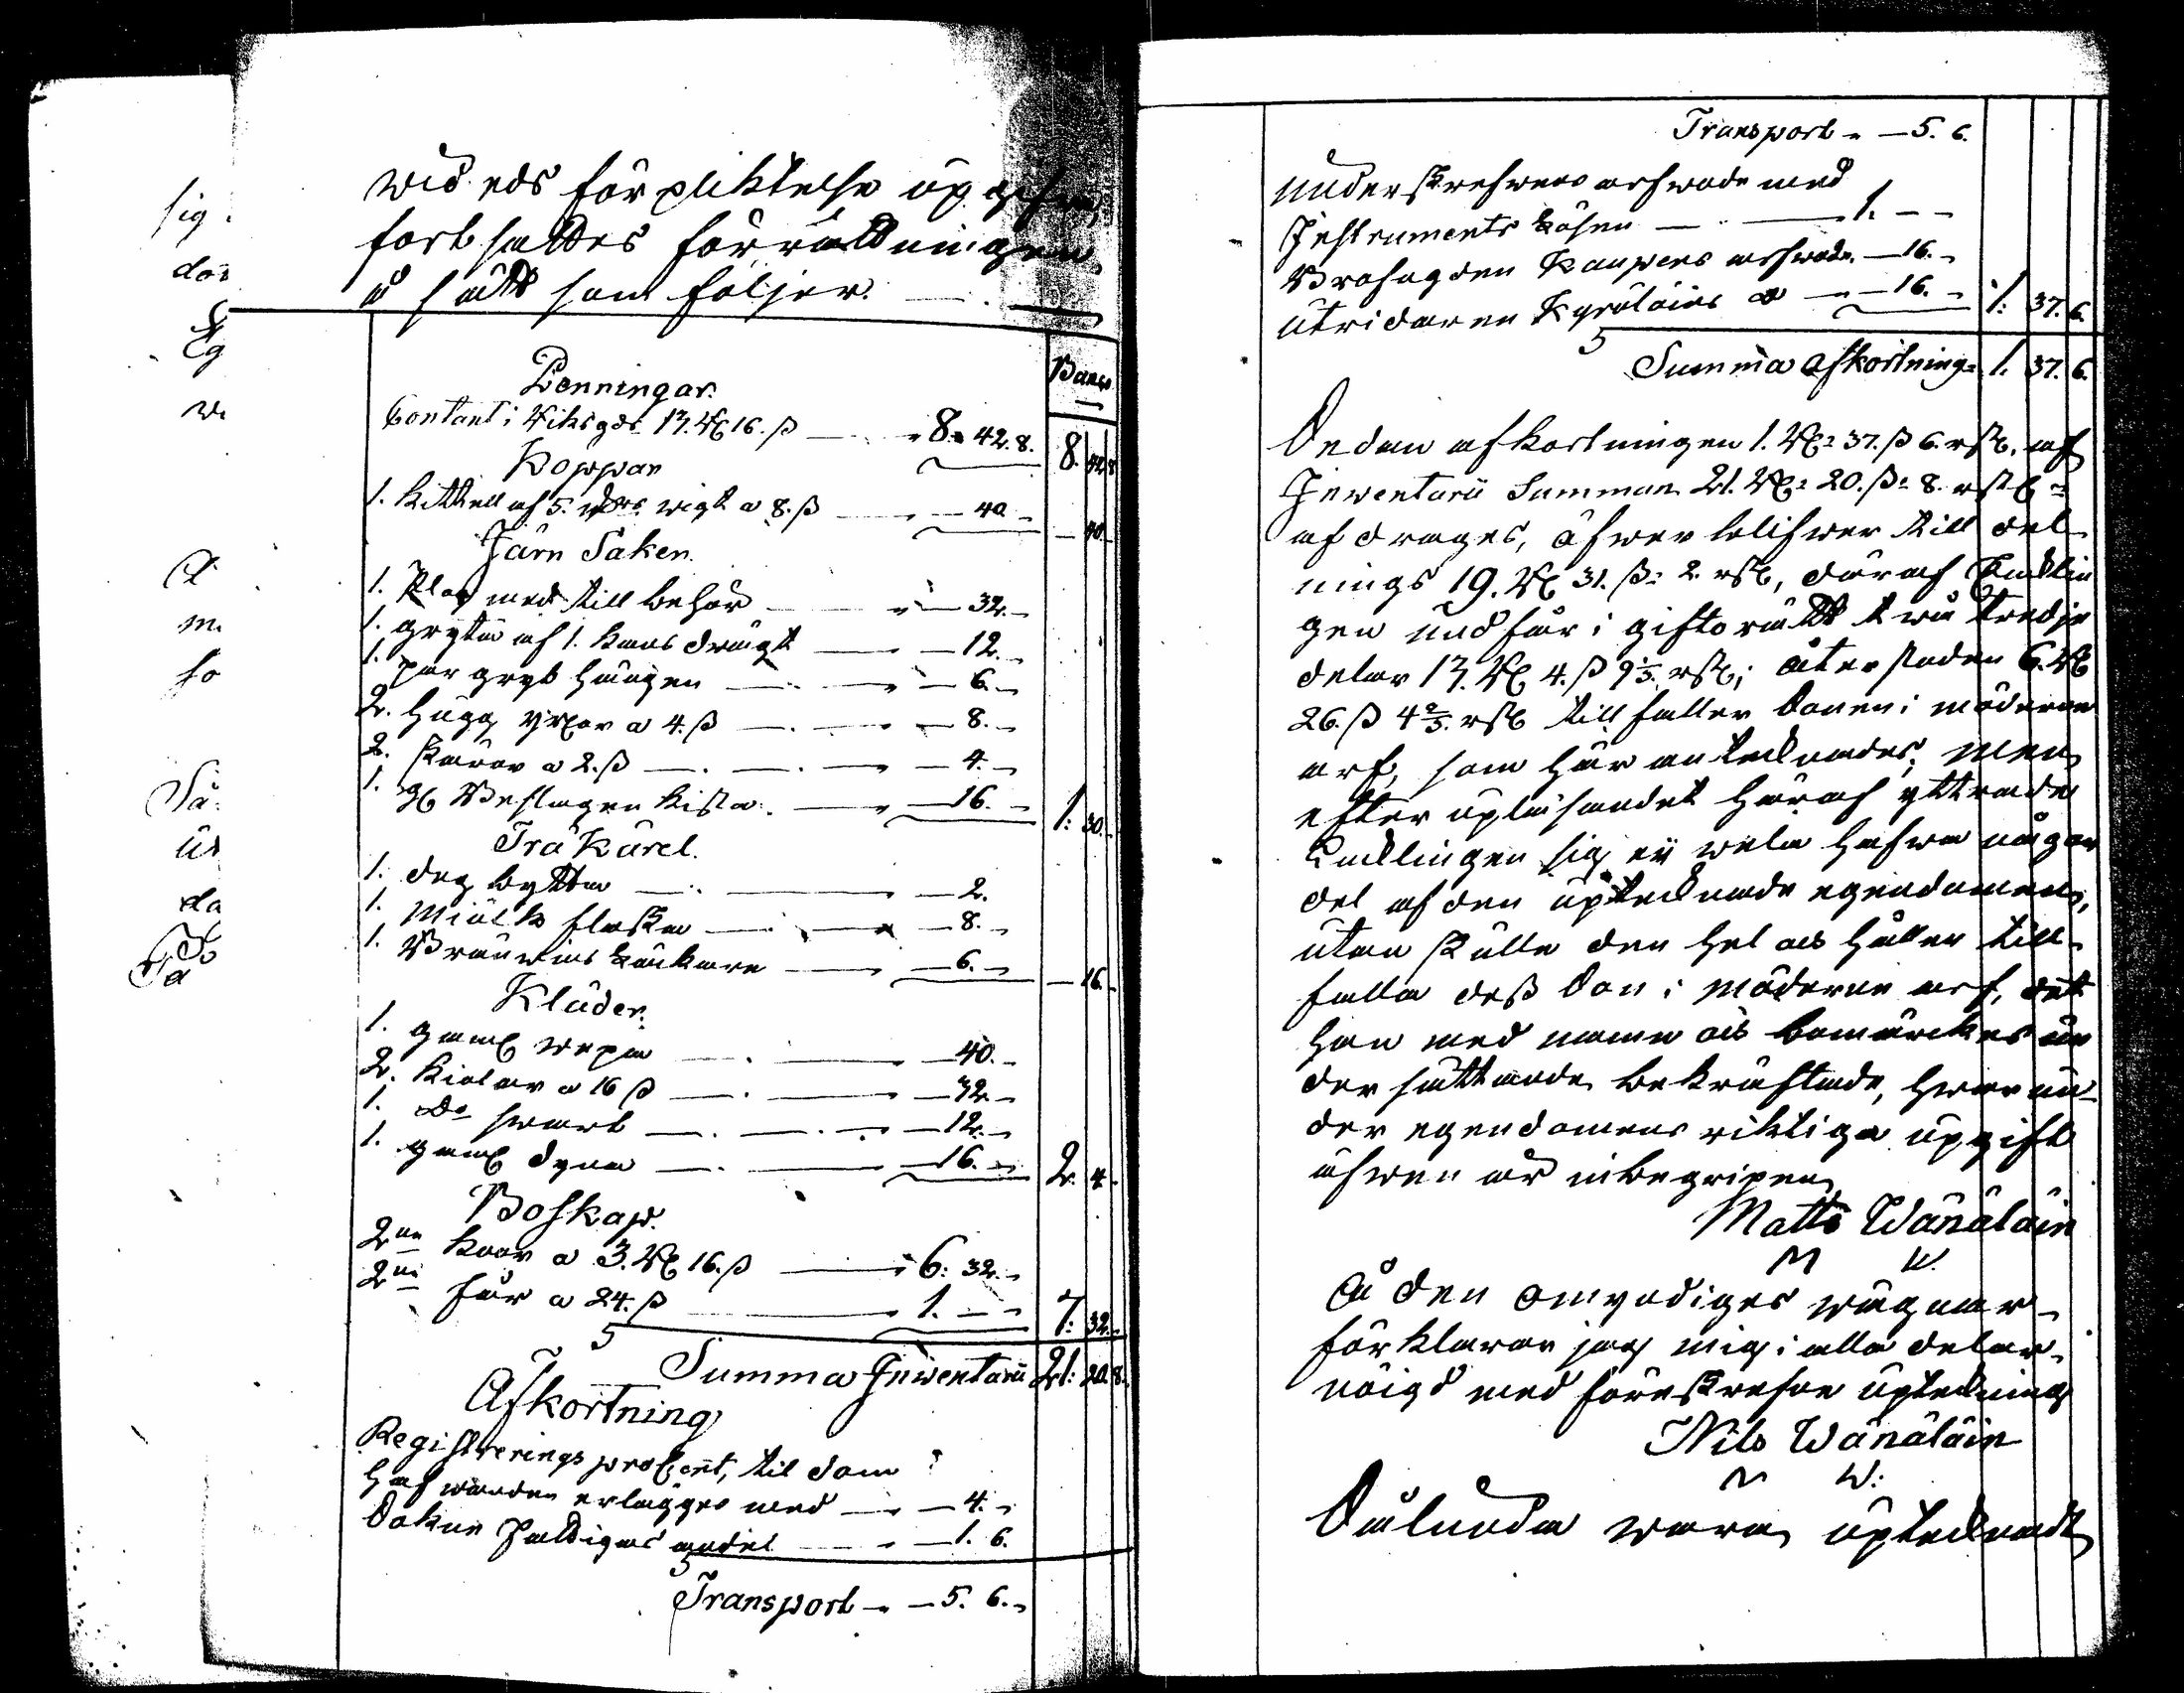 wid eds förpliktelse upgifwa,
fortsattes förrättningen
å sätt som följer.
Banco
Penningar.
Contant i Riksgds 17. Rd 16. ß — 8. 42. 8. 8. 42. 8
Koppar
1. Kittell af 5. wigt a 8. ß — 40. — 40.
Järn Saker.
1. Plog med tillbehör — 32.
1. gryta af 1. kans drägt — 12.
1. par gryt hängen — 6.
2. hugg yxor a 4. ß — 8.
2. skäror a 2. ß — 4.
1. Beslagen kista — 16. 1: 30.
Trä Kärel.
1. deg bytta — 2.
1. Miölk flaska — 8.
1. Bränwins kankare — 6. — 16.
Kläder.
1. gaml wepa — 40.
2. kiolar a 16 ß — 32.
1. do swart — 12.
1. gaml dyna — 16. 2. 4.
Boskap.
2ne koor a 3. Rd 16. ß — 6: 32.
2ne får a 24. ß — 1. — 7: 32.
Summa Inwentarii 21: 20. 8.
Afkortning
Registrerings procent, til dom
hafwanden erlägges med — 4.
Sokne fattigas andel — 1. 6.
Transport — 5. 6.
Transport — 5. 6.
Underskrefwens arfwode med
Instruments lösen — 1. —
Brofogden Kaupens arfwode — 16.
utridaren Kyröläins do — 16. 1: 37. 6.
Summa Afkortning 1. 37. 6.
Sedan afkortningen 1. Rd 37. ß 6. rst. af
Inwentarii Summan 21. Rd 20. ß 8. rst
afdrages, öfwerblifwer till del-
nings 19. Rd 31. ß 2. rst, däraf Enklin
gen undfår i giftorätt twå tredje
delar 13. Rd 4. ß 9 1/3. rst; återstoden 6. Rd
26. ß 4 2/3. rst tillfaller Sonen i möderne
arf, som här antecknades; men
efter upläsandet häraf yttrade
Enklingen sig ej wela hafwa någon
del af den uptecknade egendomen,
utan skulle den hel och hållen till-
falla dess Son i möderne arf, det
han med namn och bomärckes un
dersättande bekräftade, hwarun-
der egendomens riktiga upgift
äfwen är inbegripen
Matts Wänäläin
M W.
Å den omyndiges wägnar
förklarar jag mig i alla delar
nöigd med föreskrefne upteckning
Nils Wänäläin
N W:
Sålunda wara uptecknadt